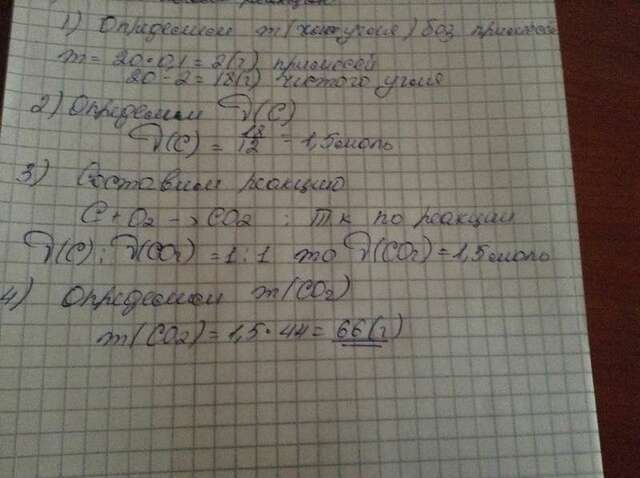 реакции
1) Определим m(чист угля) без примесей
m = 20 · 0,1 = 2(г) примесей
20 - 2 = 18(г) чистого угля
2) Определим ν(C)
ν(C) = 18/12 = 1,5 моль
3) Составим реакцию
C + O2 → CO2 ; Т к по реакции
ν(C) : ν(CO2) = 1 : 1 то ν(CO2) = 1,5 моль
4) Определим m(CO2)
m(CO2) = 1,5 · 44 = 66(г)